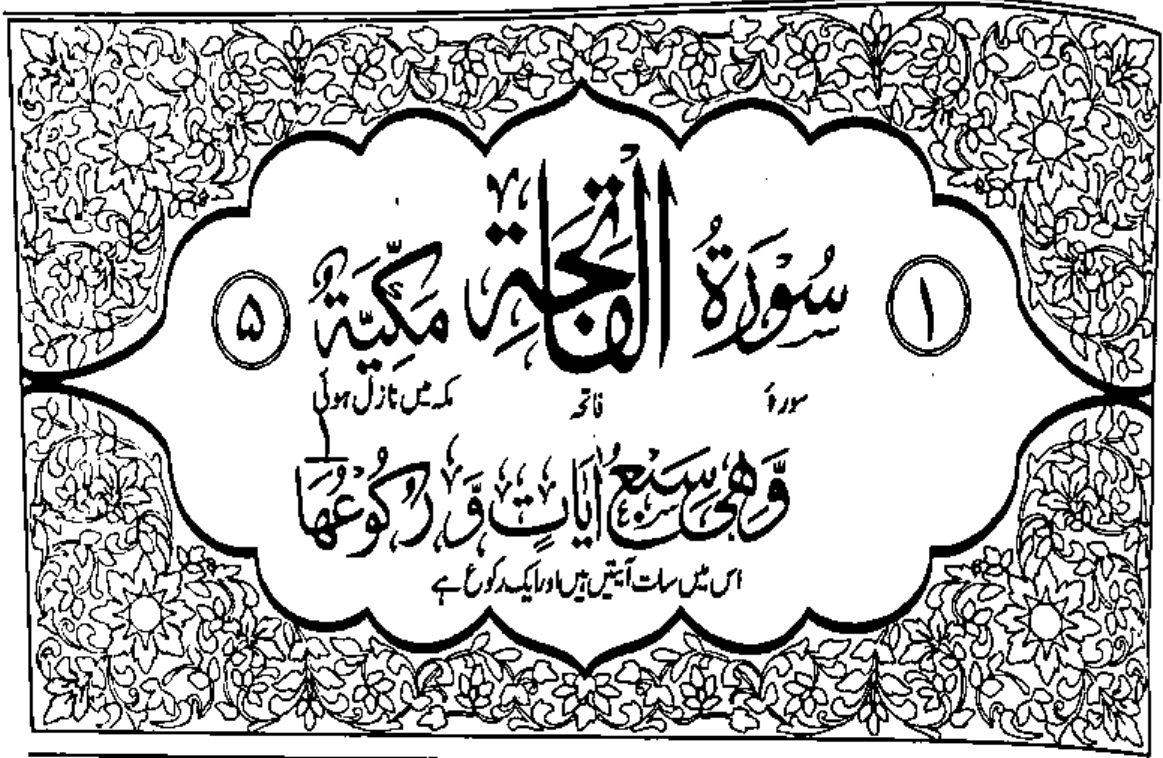 ۱ سُوْرَةُ الْفَاتِحَةِ مَكِّيَّةٌ ۵
سورۂ فاتحہ مکہ میں نازل ہوئی
وَّهِیَ سَبْعُ اٰیَاتٍ وَّ رُكُوْعُهَا
اس میں سات آیتیں ہیں اور ایک رکوع ہے